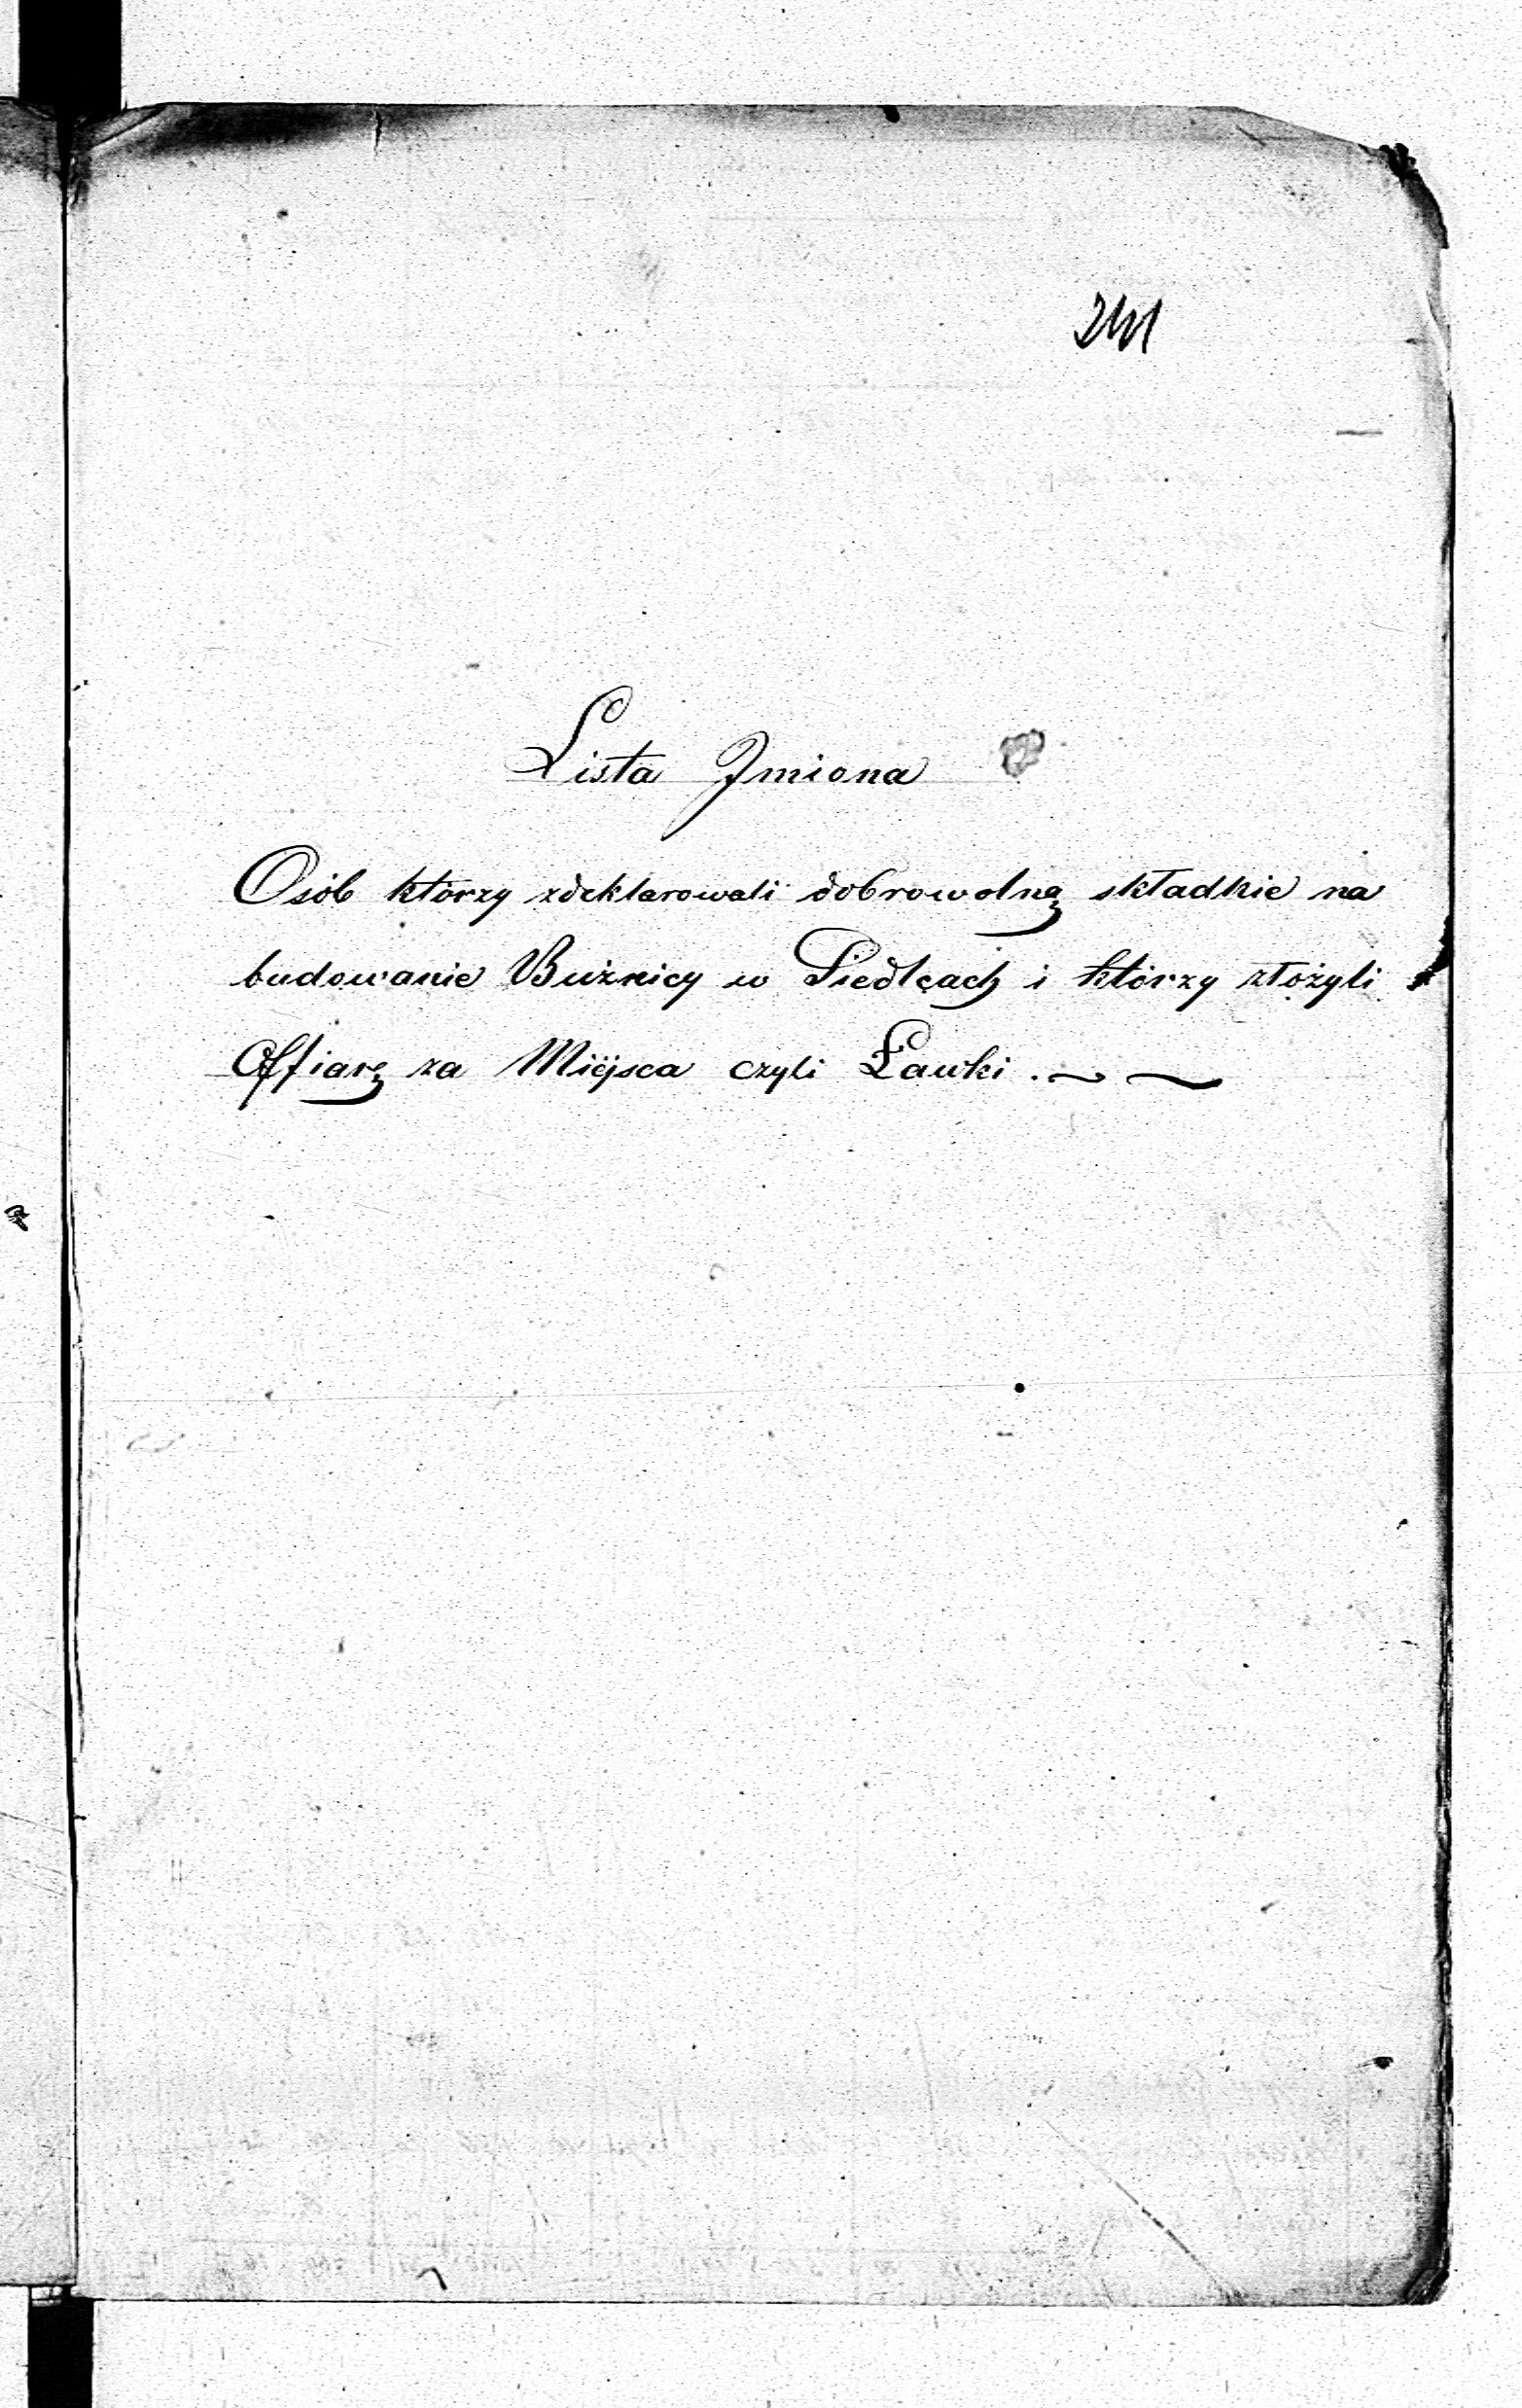 241
Lista Imiona
Osób którzy zdeklarowali dobrowolną składkie na
budowanie Bużnicy w Siedlcach i którzy złożyli
Offiarę za Miéjsca czyli Ławki.